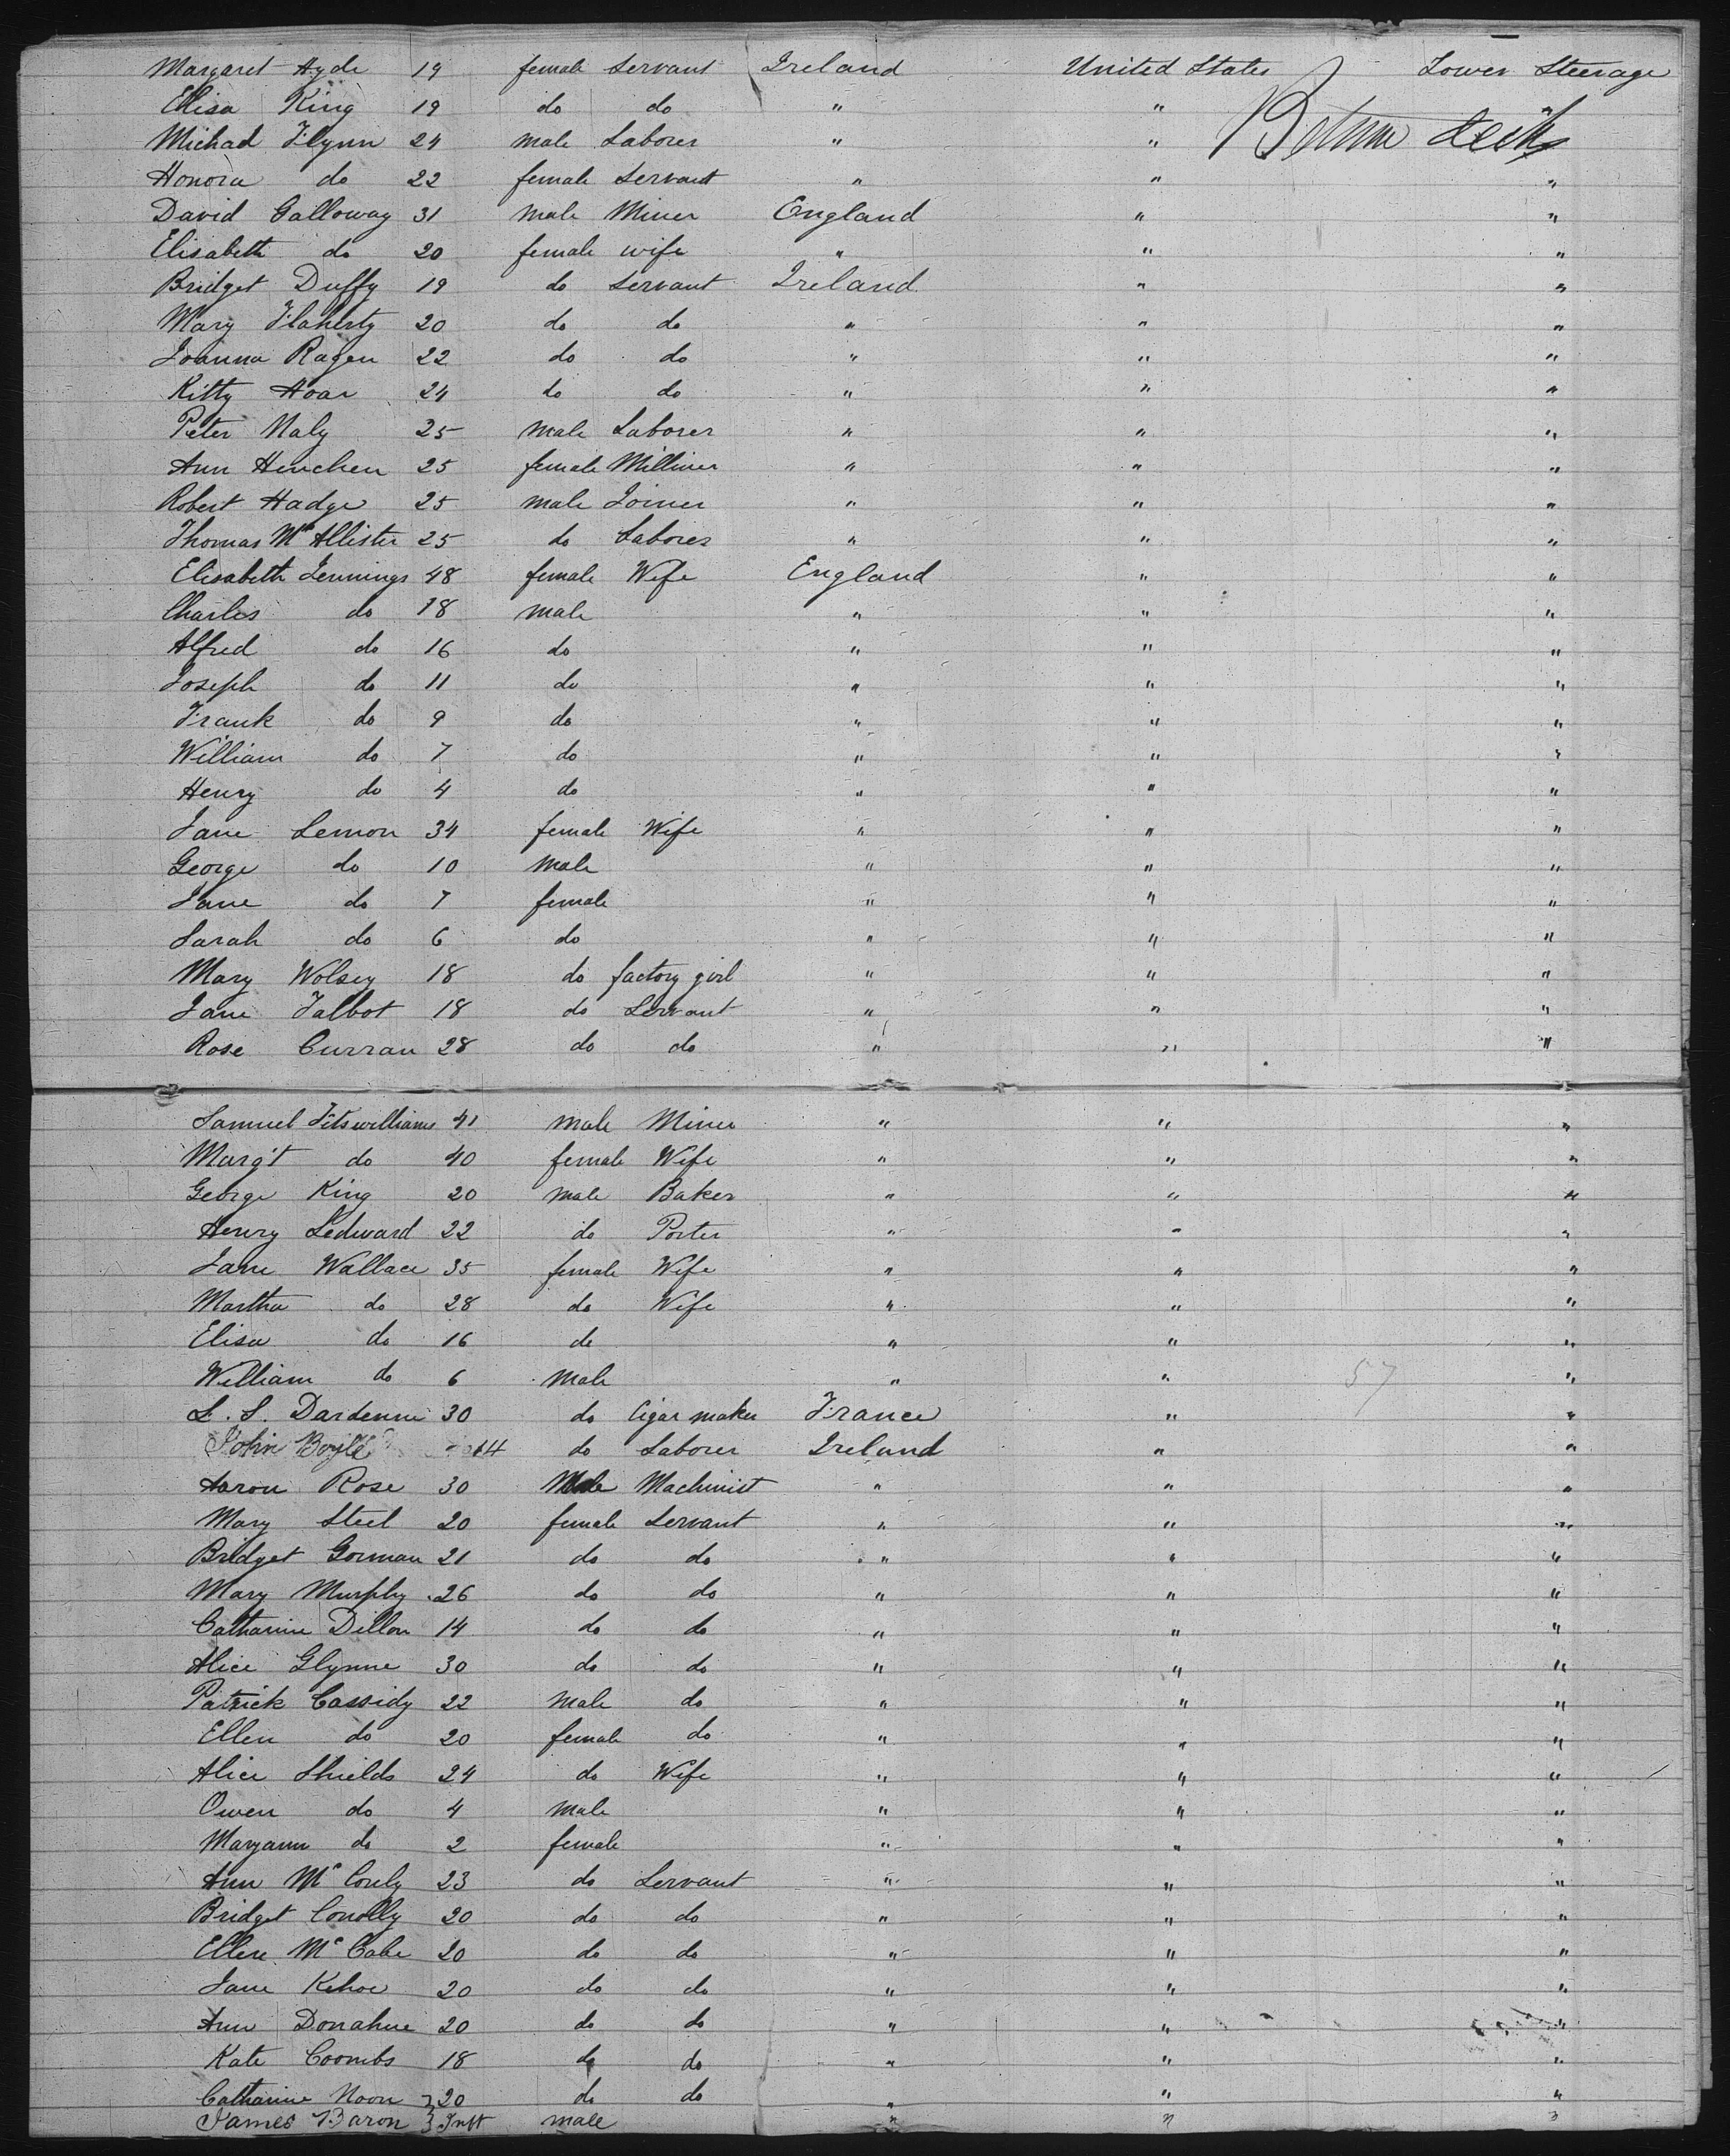 Margaret Hyde 19 female Servant Ireland United States Lower Steerage
Elisa King 19 do do " " "
Between decks
Michael Flynn 24 male Laborer " "
Honora do 22 female Servant " " "
David Galloway 31 male Miner England " "
Elisabeth do 20 female wife " " "
Bridget Duffy 19 do servant Ireland " "
Mary Flaherty 20 do do " " "
Joanna Ragen 22 do do " " "
Kitty Hoar 24 do do " " "
Peter Naly 25 male Laborer " " "
Ann Henchen 25 female Milliner " " "
Robert Hadge 25 male Joiner " " "
Thomas McAllister 25 do Laborer " " "
Elisabeth Jennings 48 female Wife England " "
Charles do 18 male " " "
Alfred do 16 do " " "
Joseph do 11 do " " "
Frank do 9 do " " "
William do 7 do " " "
Henry do 4 do " " "
Jane Lemon 34 female Wife " " "
George do 10 male " " "
Jane do 7 female " " "
Sarah do 6 do " " "
Mary Wolsey 18 do factory girl " " "
Jane Talbot 18 do Servant " " "
Rose Curran 28 do do " " "
Samuel Fitswilliams 41 male Miner " " "
Marg't do 40 female Wife " " "
George King 20 male Baker " " "
Henry Ledward 22 do Porter " " "
Jane Wallace 35 female Wife " " "
Martha do 28 do Wife " " "
Elisa do 16 do " " "
William do 6 male " " 57 "
L. S. Dardenne 30 do Cigar maker France " "
John Boyle 14 do Laborer Ireland " "
Aaron Rose 30 Male Machinist " " "
Mary Steel 20 female Servant " " "
Bridget Gorman 21 do do " " "
Mary Murphy 26 do do " " "
Catharine Dillon 14 do do " " "
Alice Glynne 30 do do " " "
Patrick Cassidy 22 male do " " "
Ellen do 20 female do " " "
Alice Shields 24 do Wife " " "
Owen do 4 male " " "
Maryann do 2 female " " "
Ann Mc 23 do Servant " " "
Bridget Conolly 20 do do " " "
Ellen McCabe 20 do do " " "
Jane Kehoe 20 do do " " "
Ann Donahue 20 do do " " "
Kate Coombs 18 do do " " "
Catharine Noon } 20 do do " " "
James Baron } Inft male " " "